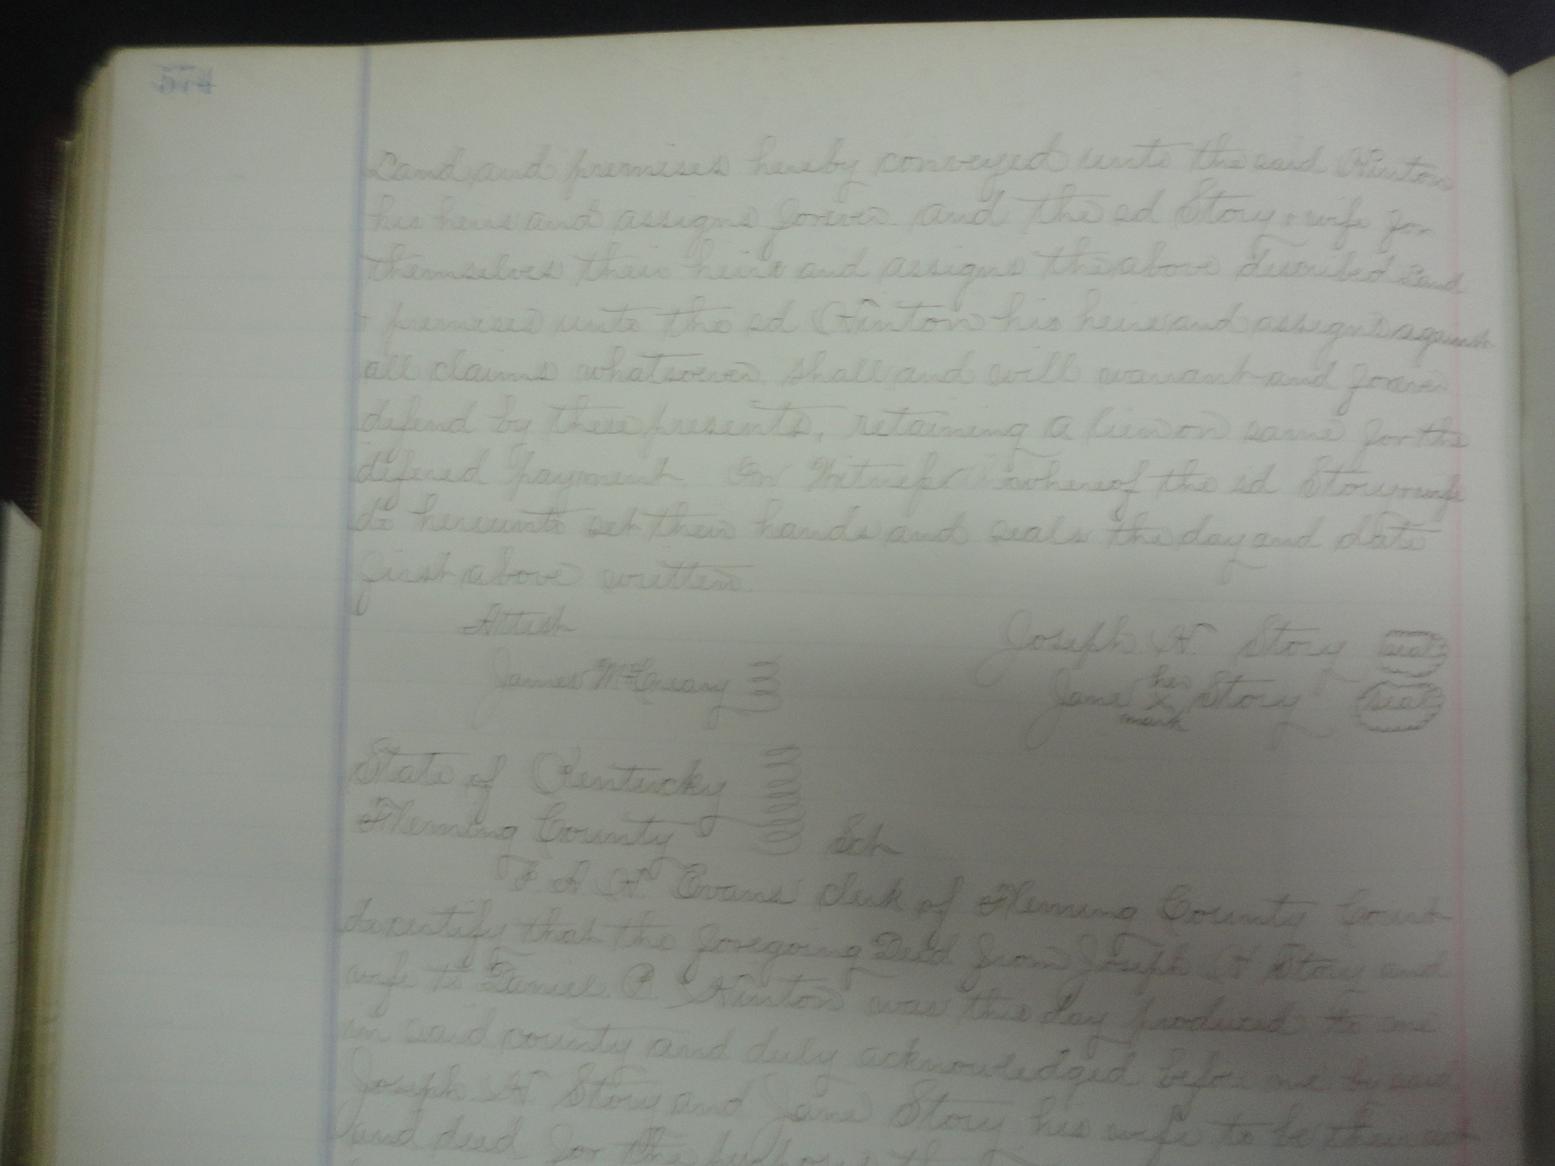 574
Land and premises hereby conveyed unto the said Hinton
his heirs and assigns forever and the sd Story & wife for
themselves their heirs and assigns the above described Land
& premises unto the sd Hinton his heirs and assigns against
all claims whatsoever shall and will warrant and forever
defend by these presents, retaining a lien on same for the
difered payment. In Witness whereof the sd Story & wife
do hereunto set their hands and seals the day and date
first above written
Attest
Joseph H. Story seal
James McCreary
her
Jane x Story seal
mark
State of Kentucky
Fleming County Sct
I A H Evans Clerk of Fleming County Court
do certify that the foregoing Deed from Joseph H Story and
wife to Hinton was this day produced to me
in said county and duly acknowledged before me by said
Joseph H Story and Jane Story his wife to be their act
and deed for the